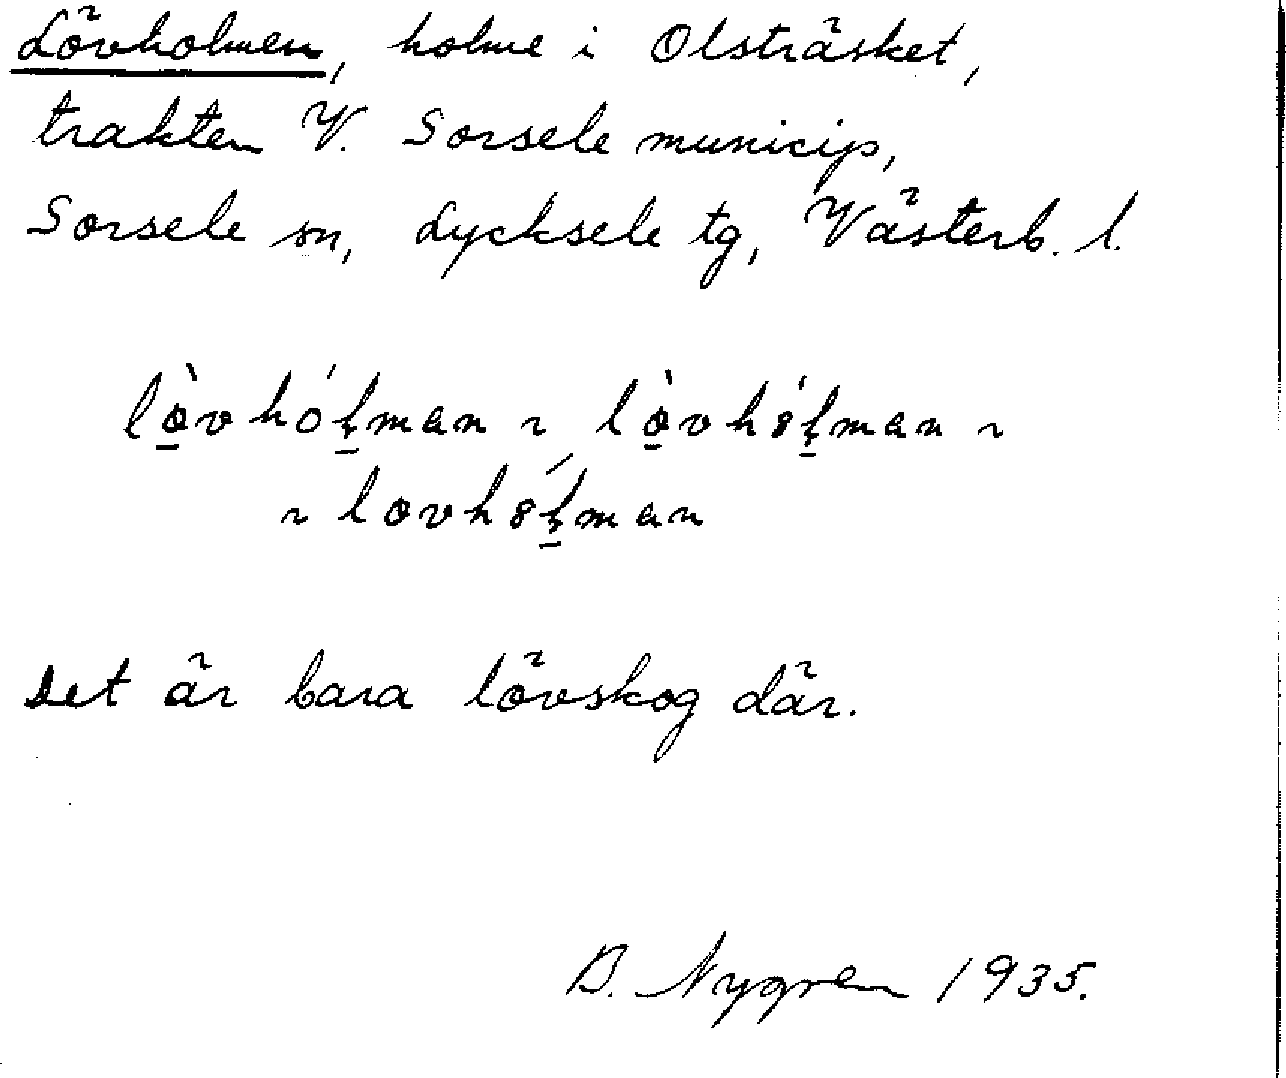 Lövholmen, holme i Olsträsket,
trakten V. Sorsele municip,
Sorsele sn, Lycksele tg, Västerb. l.
lò̲vhóḷ̲man ~ lò̲vh8́ḷ̲man ~
~ lovh8ḷ̲́man
Det är bara lövskog där.
B. Nygren 1935.